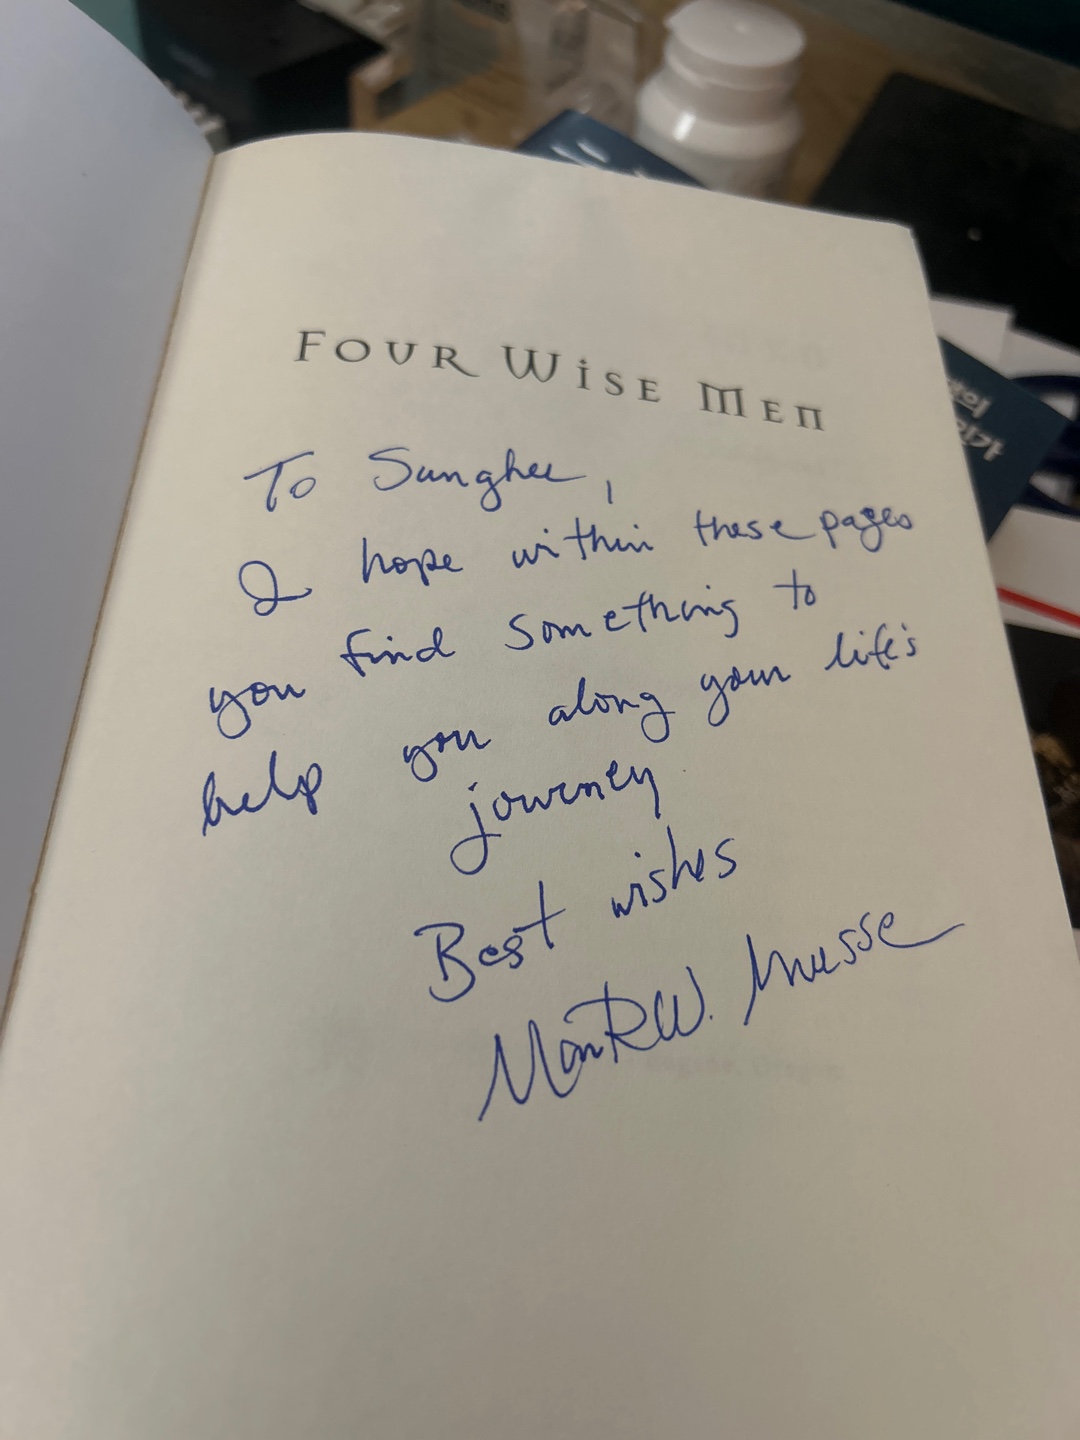 FOUR WISE MEN
To Sunghee,
I hope within these pages
you find something to
help you along your life's
journey
Best wishes
Mark W. Muesse
의
인가